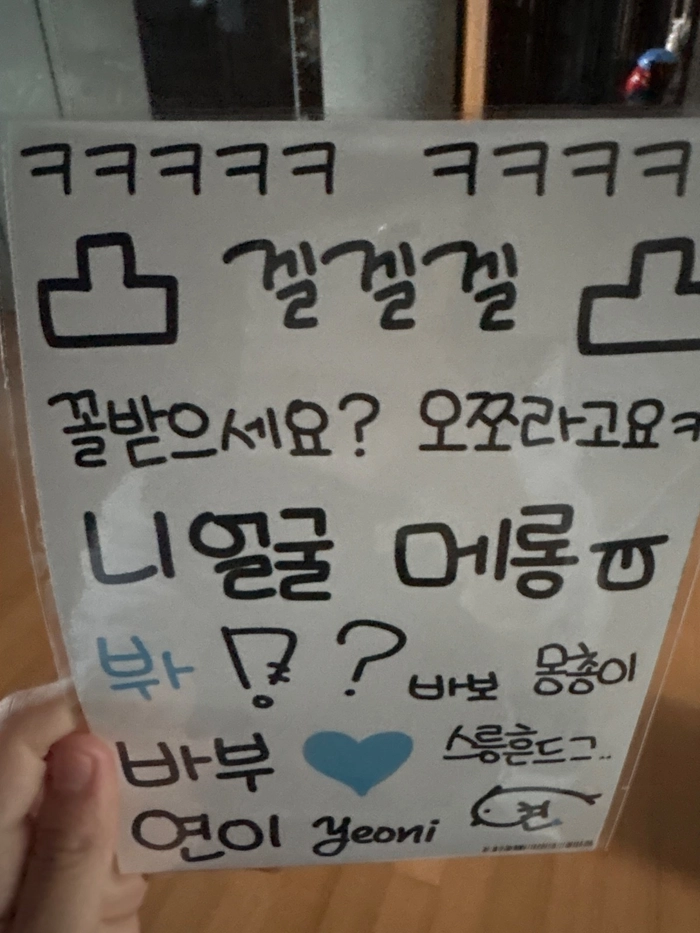 ㅋㅋㅋㅋㅋ ㅋㅋㅋㅋ
凸 겔겔겔 凸
꼴받으세요? 오쪼라고요ㅋ
니얼굴 메롱ㅁ
뷰 !? 바보 몽총이
바부 스릉흔드그..
연이 Yeoni 현